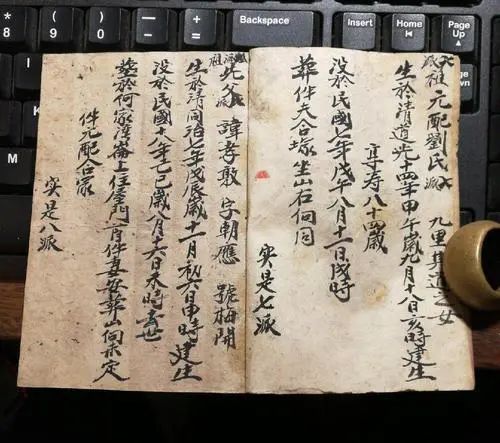 * 8
( 9
) 0
Backspace
Insert
Home
Page Up
End
Page Down
祖 元配劉氏 九里其道之女
生於清道光十四年甲午歲九月十八日亥時建生
享寿八十四歲
没於民國七年戊午八月十一日戌時
葬仵夫合塚坐山石向同
实是七派
父 諱孝敷 字朝應 號梅開
生於清同治七年戊辰歲十一月初六日申時建生
没於民國十八年己巳歲八月十六日未時去世
塟於何家湾崙上住屋门首仵妻安葬山向定
仵元配合冢
实是八派